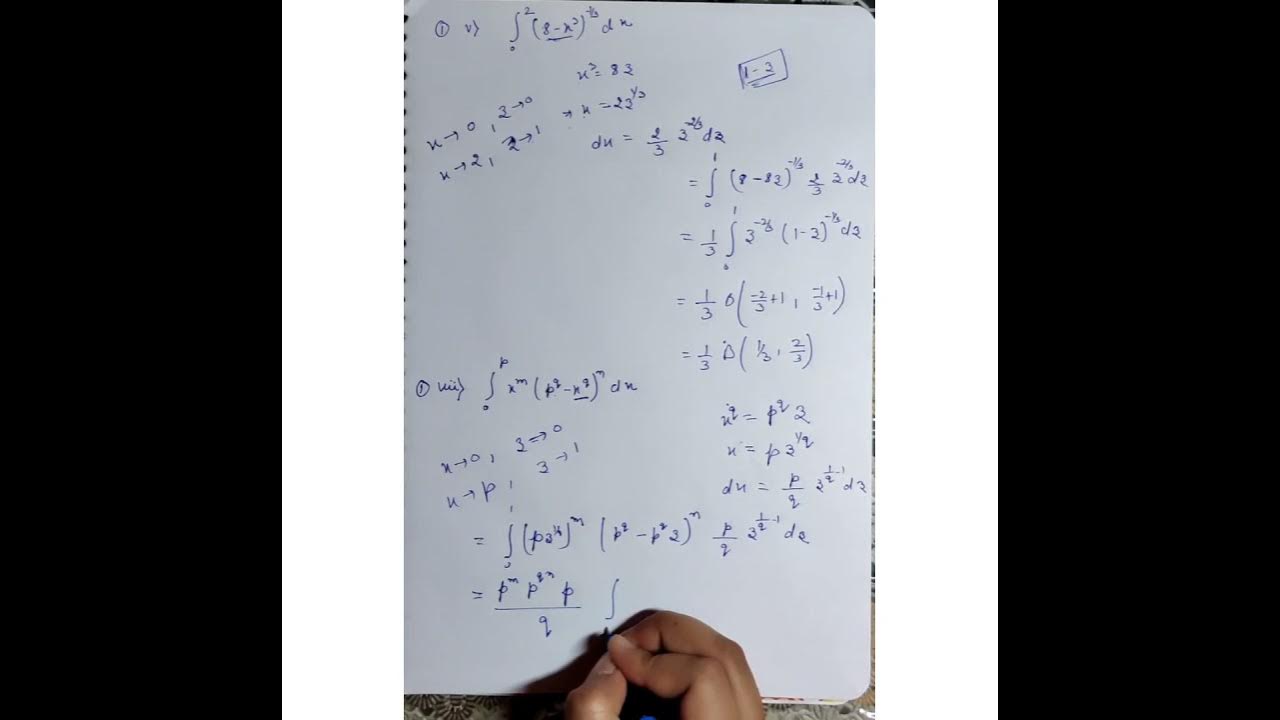 ① v) ∫₀² (8-x³)^(-1/3) dx
x³ = 8z
1-z
x→0, z→0
⇒ x = 2z^(1/3)
x→2, z→1
dx = 2/3 z^(-2/3) dz
= ∫₀¹ (8-8z)^(-1/3) 2/3 z^(-2/3) dz
= 1/3 ∫₀¹ z^(-2/3) (1-z)^(-1/3) dz
= 1/3 β(-2/3+1, -1/3+1)
= 1/3 β(1/3, 2/3)
① viii) ∫₀^p x^m (p^q-x^q)^n dx
x^q = p^q z
x→0, z→0
x = p z^(1/q)
x→p, z→1
dx = p/q z^(1/q-1) dz
= ∫₀¹ (pz^(1/q))^m (p^q-p^q z)^n p/q z^(1/q-1) dz
= p^m p^(qn) p / q ∫